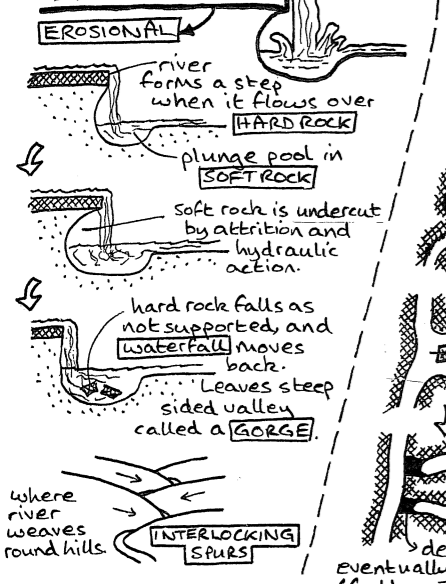 EROSIONAL
river
forms a step
when it flows over
HARD ROCK
plunge pool in
SOFT ROCK
Soft rock is undercut
by attrition and
hydraulic
action.
hard rock falls as
not supported, and
waterfall moves
back.
Leaves steep
sided valley
called a GORGE.
where
river
weaves
round hills.
INTERLOCKING
SPURS
eventually